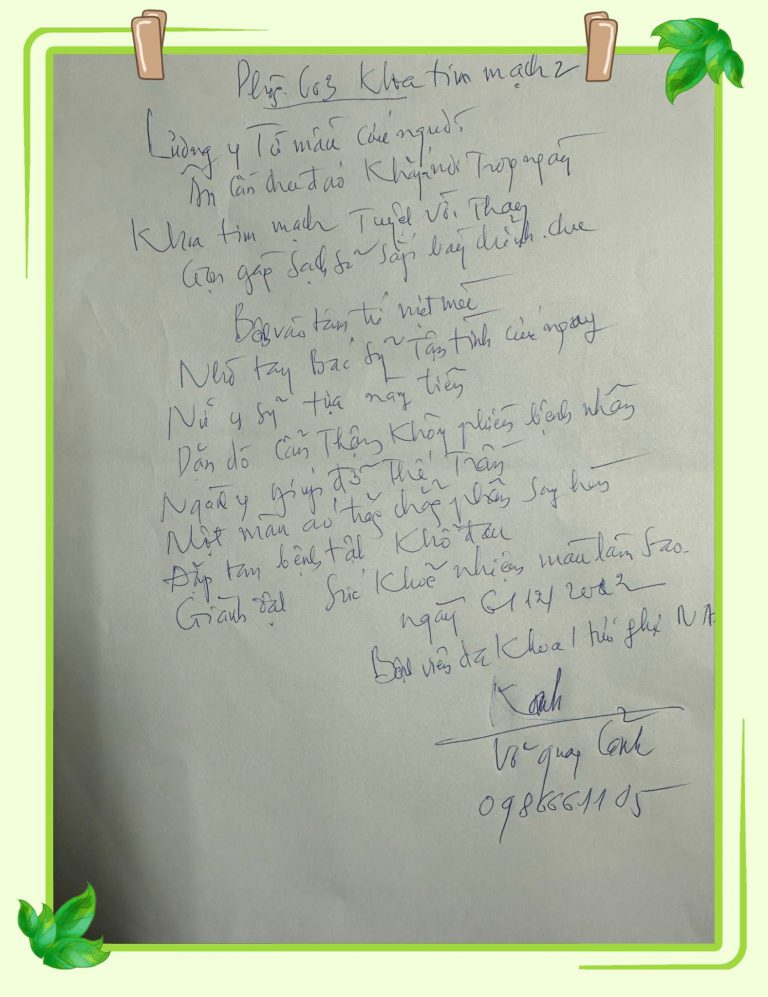 Phòng 603 Khoa tim mạch 2
Lương y Từ mẫu cứu người
Ân cần chu đáo Khắp nơi Trong ngày
Khoa tim mạch Tuyệt vời Thay
Gọn gàng sạch sẽ sắp bày chỉnh chu
Bệnh vào tâm tư mệt mỏi
Nhờ tay Bác sỹ Tận tình cứu ngay
Nữ y sỹ tựa nàng tiên
Dặn dò cẩn Thận Không phiền bệnh nhân
Ngành y giúp đỡ Thế Trần
Một màu áo trắng chẳng phân sang hèn
Đập tan bệnh tật Khổ đau
Giành vật sức khoẻ nhiệm màu làm sao
ngày 6/12/2022
Bệnh viện đa Khoa NA
Võ quang Cảnh
0986661105